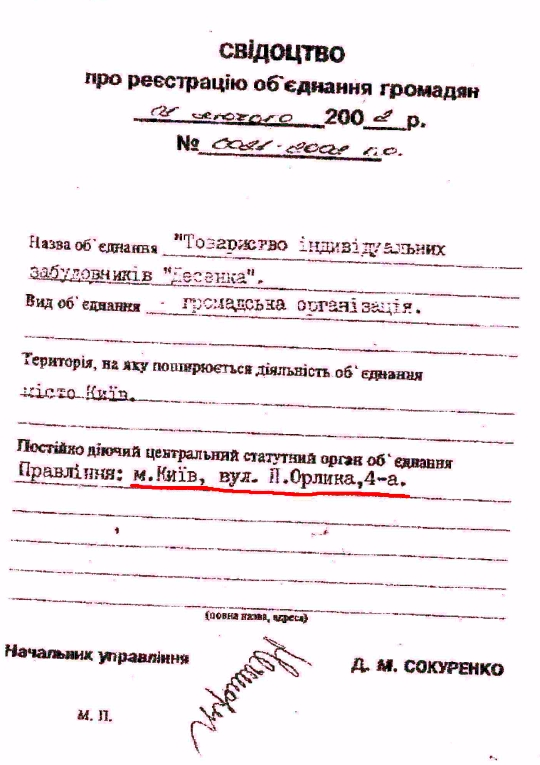 СВІДОЦТВО
про реєстрацію об`єднання громадян
лютого 2002 р.
№ 0021-2002 г.о.
Назва об`єднання "Товариство індивідуальних
забудовників "Десенка".
Вид об`єднання - громадська організація.
Територія, на яку поширюється діяльність об`єднання
місто Київ.
Постійно діючий центральний статутний орган об`єднання
Правління: м.Київ, вул. П.Орлика,4-а.
(повна назва, адреса)
Начальник управління Д. М. СОКУРЕНКО
М. П.